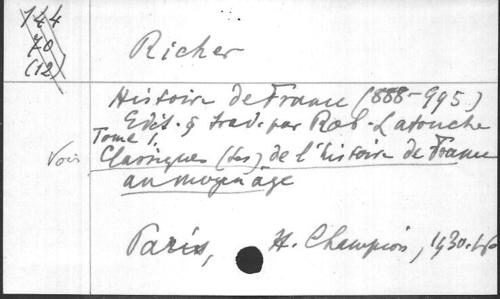 144
70
(12)
Richer
Histoire de France (888-995)
Edit. & trad. par Rob. Latouche
Tome 1.
Voir Classiques (Les) de l'histoire de France
au moyen âge
Paris, H. Champion, 1930.